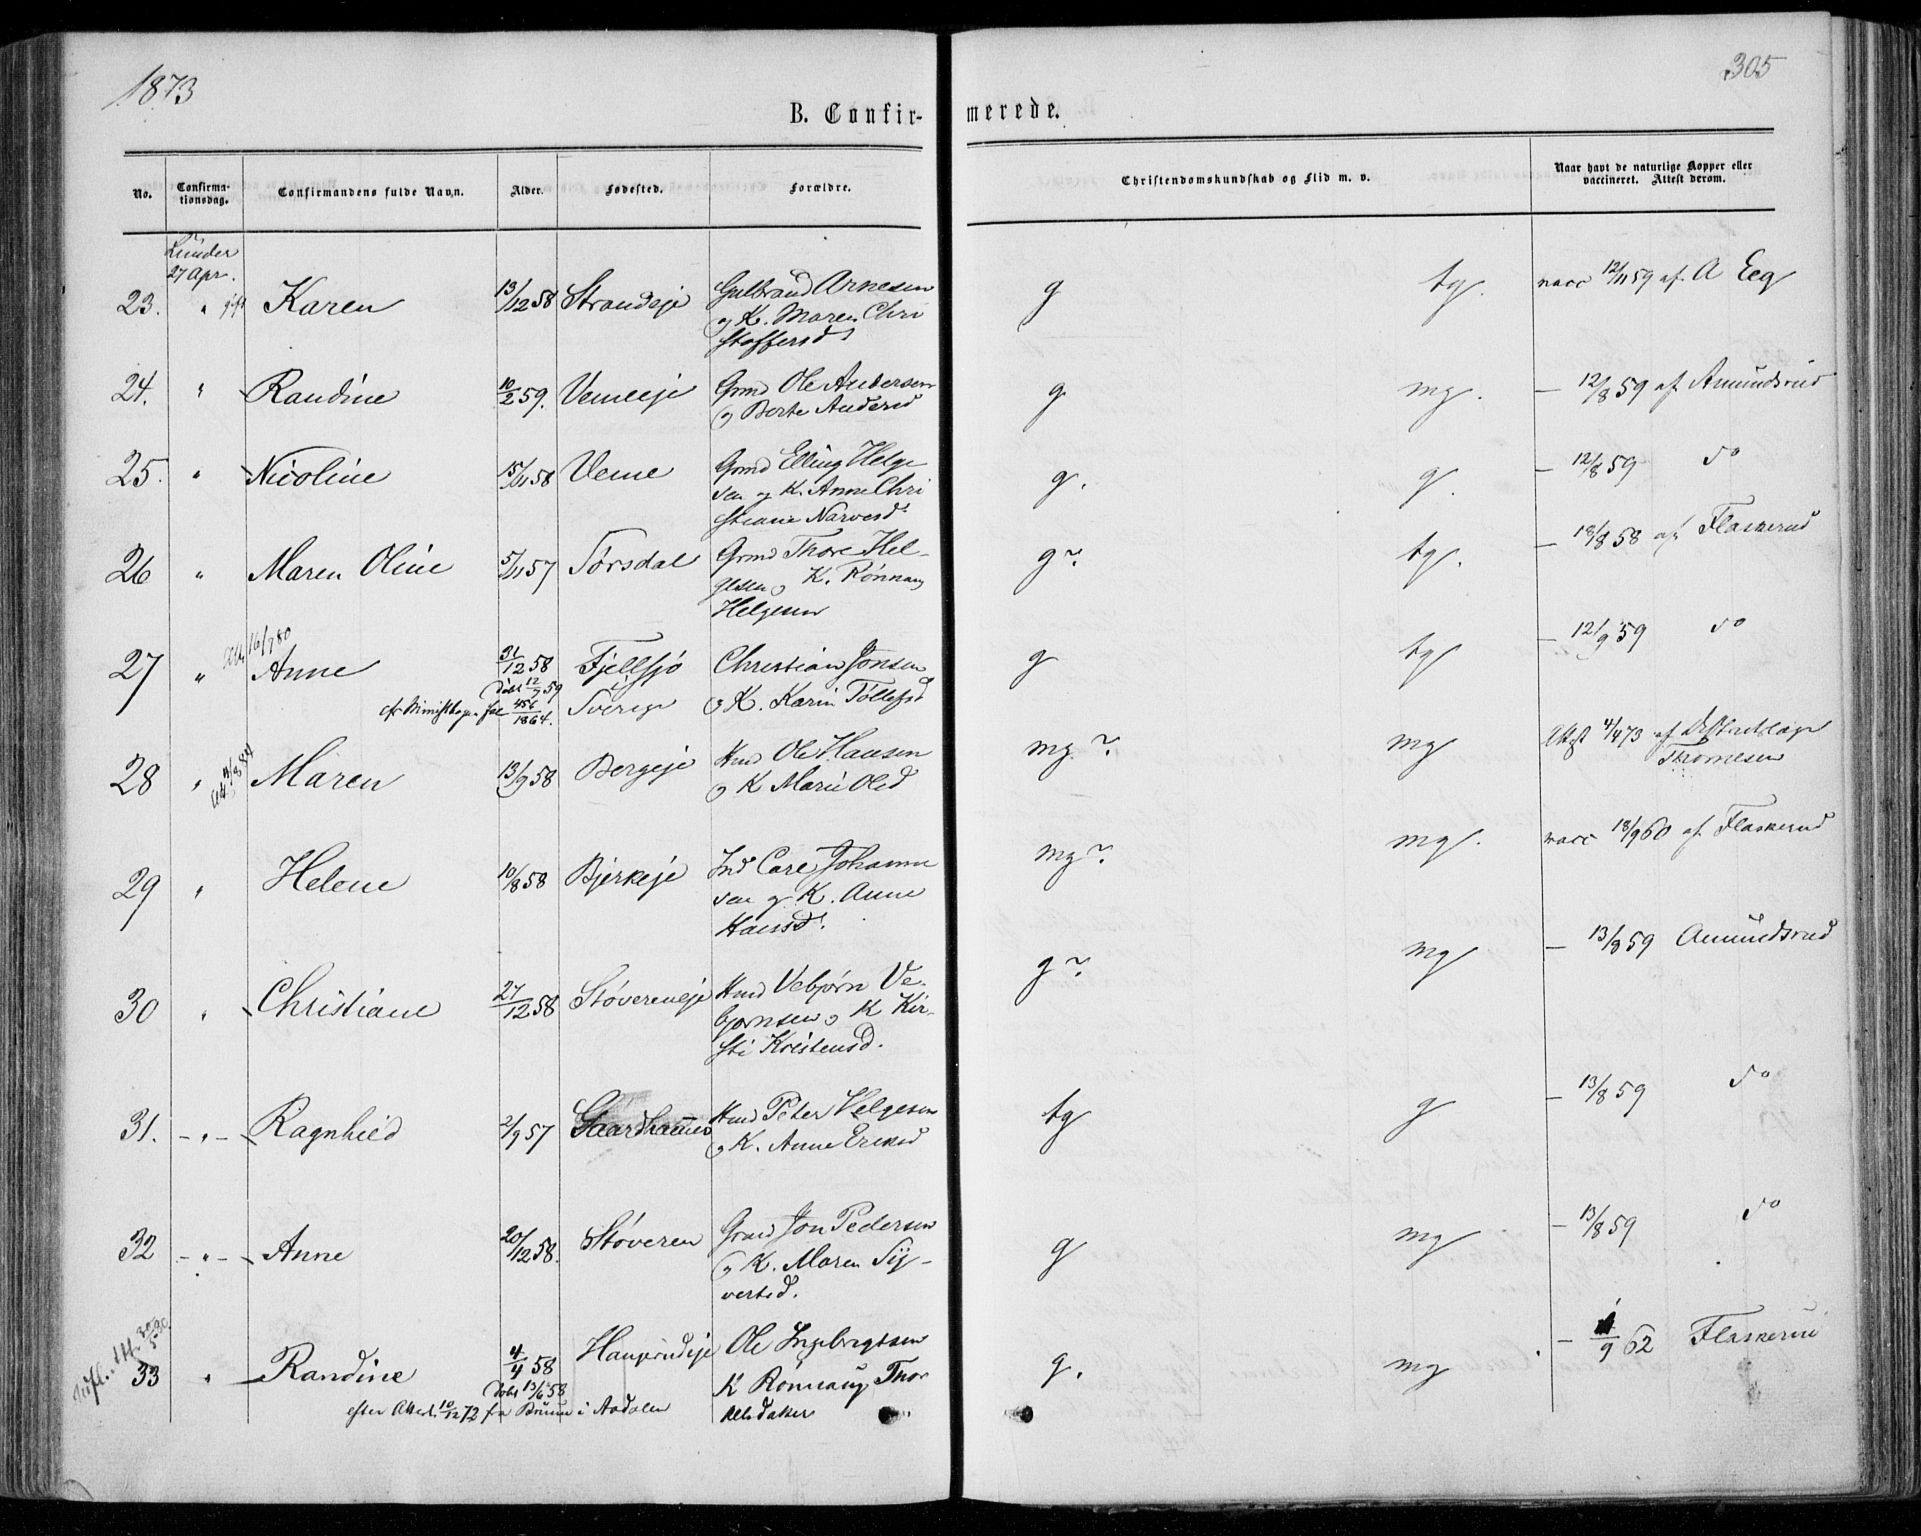 1873
305
B. Confir- merede.
No.
Confirma-
tionsdag.
Confirmandens fulde Navn.
Alder.
Fødested.
Forældre.
Christendomskundskab og Flid m. v.
Naar havt de naturlige Kopper eller
vaccineret. Attest derom.
Lunder
27 Apr.
23. " Karen 13/12 58 Strandeje Gulbrand Arnesen g tg. vacc 12/11 59 af A Eeg
og K. Maren Chri
stoffersd
24. " Randine 10/2 59. Vemeeje Grmd Ole Andersen g mg. — 12/8 59 af Amundsrud
og Berte Andersd
25. " Nicoline 15/11 58 Veme Grmd Elling Helge g. g. — 12/8 59 do
sen og K. Anne Chri
stiane Narvesd
26 " Maren Oline 5/11 57 Sørsdal Grmd Thore Hel- g? tg. — 18/8 58 af Flaskerud
gesen og K. Rønnaug
Helgesen
27 " Anne 31/12 58 Fjellsjø Christian Jonsen g tg — 12/9 59 do
døbt 12/9 59 i
456/1864. Sverige og K. Karin Tollefsd
28 " Maren 13/9 58 Bergeje Hmd Ole Hansen mg? mg Attest 4/4 73 af Distriktslæge
og K Marie Olsd Thomesen
29 " Helene 10/8 58 Bjerkeje Ind Carl Johanne mg? mg. vacc 18/9 60 af Flaskerud
sen og K. Anne
Hansd.
30 " Christiane 27/12 58 Støvereneje Hmd Vebjørn Ve- g? mg — 13/8 59 Amundsrud
bjørnsen og K Kir-
sti Kristensd.
31. -"- Ragnhild 2/9 57 Gaardhammer Hmd Peter Helgesen tg g — 13/8 59 do
og K. Anne Eriksd
32 -"- Anne 20/12 58. Støveren Grmd Jon Pedersen g mg — 13/8 59 do
og K. Maren Sy-
vertsd.
33 " Randine 4/4 58 Haugerudeje Ole Ingebrigtsen g. mg — 1/9 62 Flaskerud
døbt 13/6 58 K Rønnaug Thor
efter Attest 10/12 72 fra i Aadalen